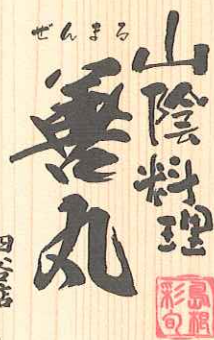 山陰料理
ぜんまる
善丸
四谷店
島根
彩旬